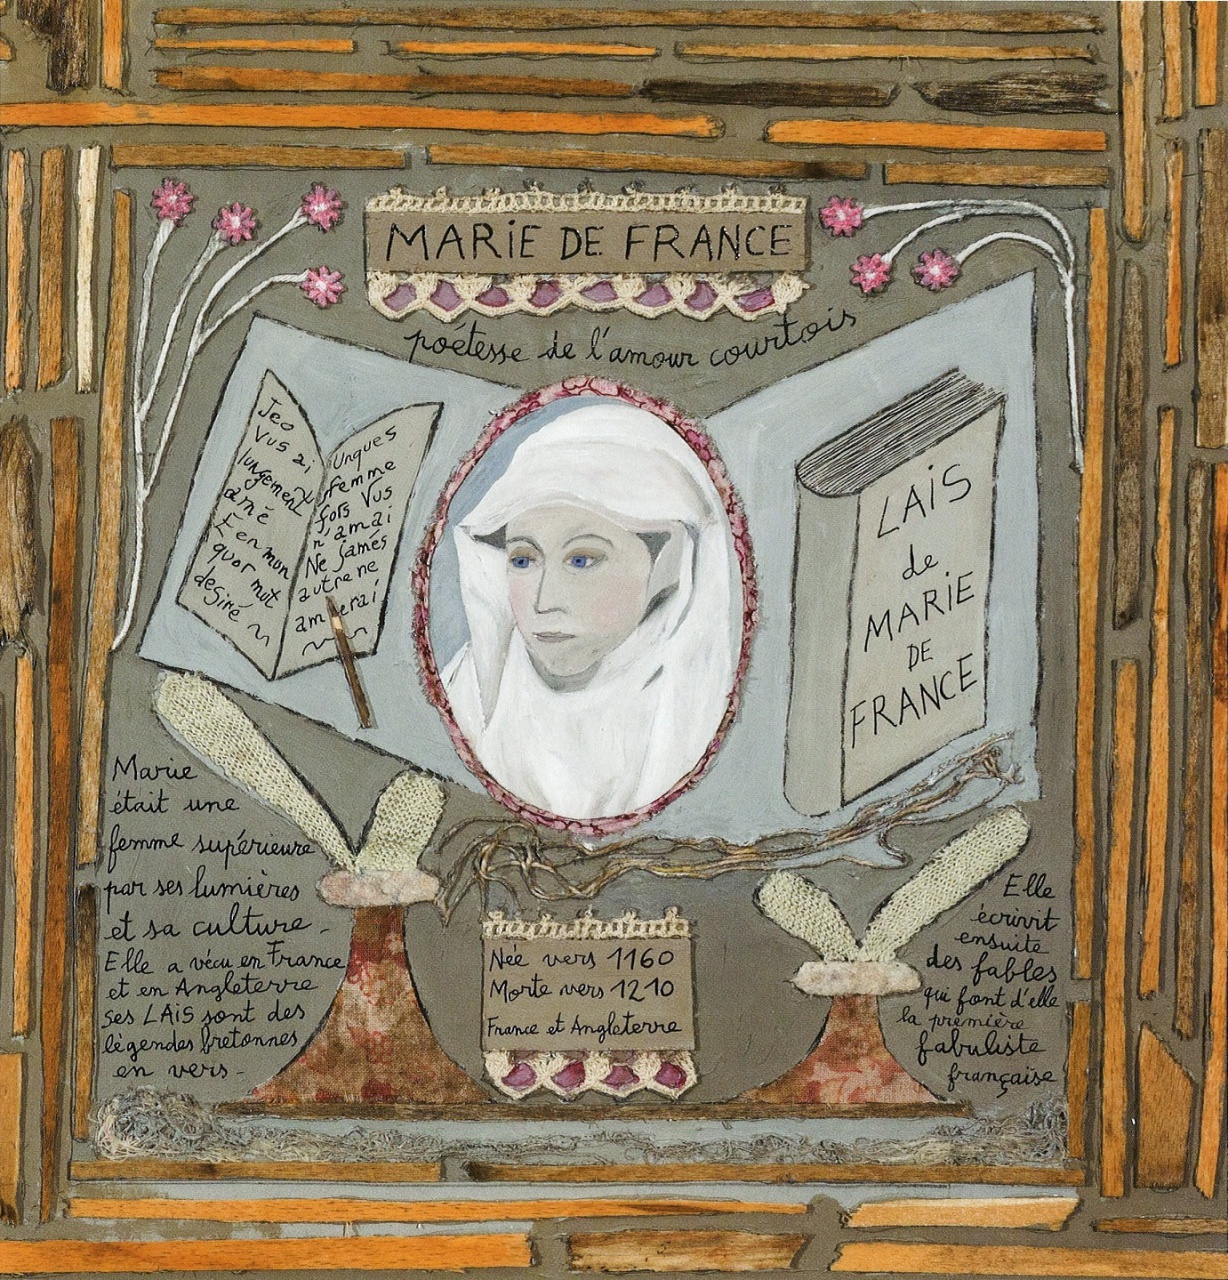 MARIE DE FRANCE
poétesse de l'amour courtois
Jeo
vus ai
lungement
amé
E en mon
quor mut
desiré
Unques
femme
fors vus
n'amai
Ne jamés
autre ne
amerai
LAIS
de
MARIE
DE
FRANCE
Marie
était une
femme supérieure
par ses lumières
et sa culture -
Elle a vécu en France
et en Angleterre
ses LAIS sont des
légendes bretonnes
en vers -
Née vers 1160
Morte vers 1210
France et Angleterre
Elle
écrivit
ensuite
des fables
qui font d'elle
la première
fabuliste
française